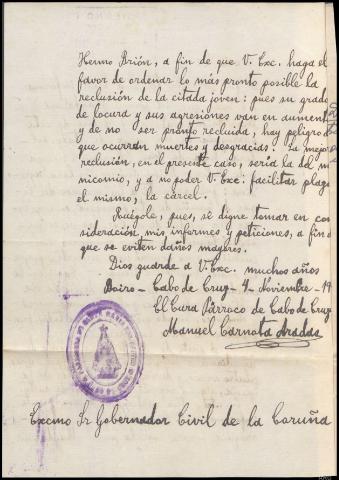 Hermo Brión, a fin de que V. Exc. haga el
favor de ordenar lo más pronto posible la
reclusión de la citada joven: pues su grado
de locura y sus agresiones van en aument
y de no ser pronto recluida, hay peligro d
que ocurran muertes y desgracias. La mejor
reclusión, en el presente caso, sería la del m
nicomio, y a no poder V. Exc: facilitar plaza
el mismo, la cárcel.
Ruégole, pues, se digne tomar en con
sideración, mis informes y peticiones, a fin d
que se eviten daños mayores.
Dios guarde a V. Exc. muchos años
Boiro - Cabo de Cruz - 4 Noviembre - 19
El Cura Párroco de Cabo de Cruz
Manuel
Excmo Sr Gobernador Civil de la Coruña